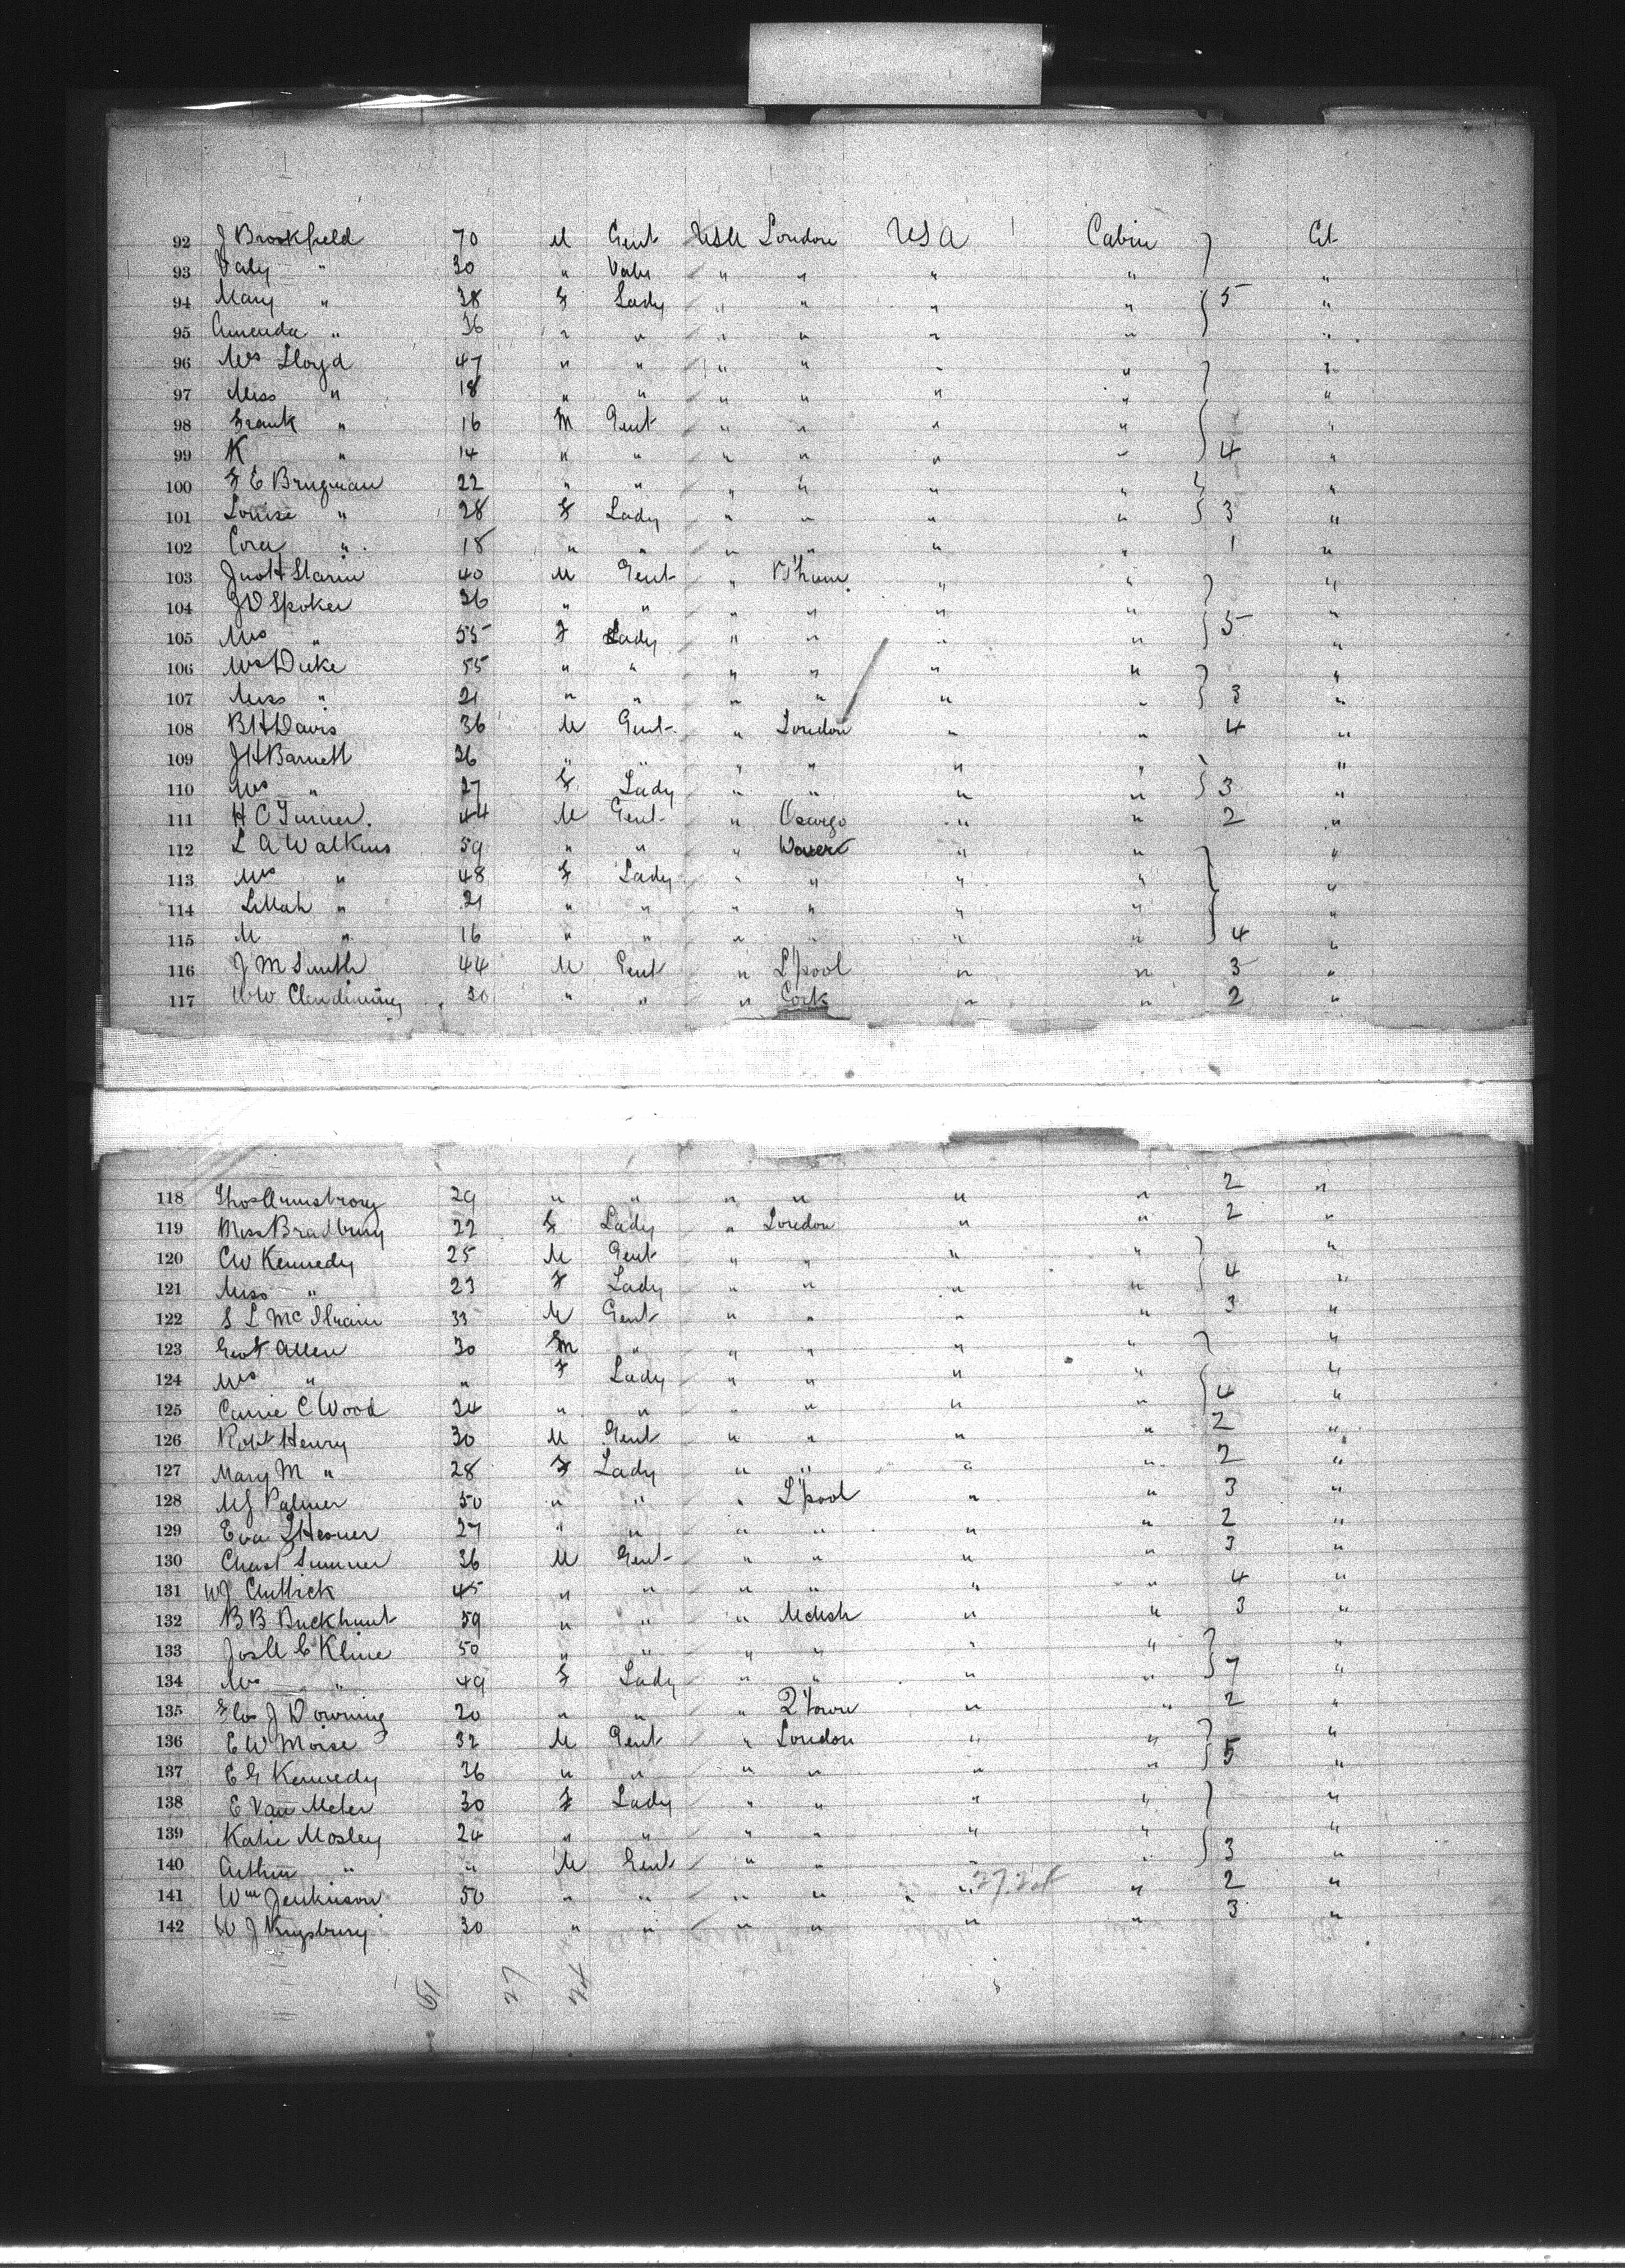 92 J Brookfield 70 M Gent USA London USA Cabin Ct
93 Valy " 30 " Valy " " " " "
94 Mary " 38 F Lady " " " " 5 "
95 Amenda " 36 " " " " " " "
96 Mrs Lloyd 47 " " " " " " "
97 Miss " 18 " " " " " " "
98 Frank " 16 M Gent " " " " "
99 K " 14 " " " " " " 4 "
100 F E Brugman 22 " " " " " " "
101 Louise " 28 F Lady " " " " 3 "
102 Cora " 18 " " " " " " 1 "
103 Jno H Starin 40 M Gent " B'ham " " "
104 J V Spoker 36 " " " " " " "
105 Mrs " 55 F Lady " " " " 5 "
106 Mrs Duke 55 " " " " " " "
107 Miss " 21 " " " " " " 3 "
108 B H Davis 36 M Gent " London " " 4 "
109 J H Barnett 36 " " " " " " "
110 Mrs " 27 F Lady " " " " 3 "
111 H C Turner 44 M Gent " Oswego " " 2 "
112 L A Walkins 59 " " " " " "
113 Mrs " 48 F Lady " " " " "
114 Lillah " 21 " " " " " " "
115 M " 16 " " " " " " 4 "
116 J M Smith 44 M Gent " L'pool " " 3 "
117 W W Clendinning 30 " " " Cork " " 2 "
118 Thos Armstrong 29 " " " " " " 2 "
119 Miss Bradbury 22 F Lady " London " " 2 "
120 C W Kennedy 25 M Gent " " " " "
121 Miss " 23 F Lady " " " " 4 "
122 S L McIlrain 33 M Gent " " " " 3 "
123 Allen 30 M " " " " " "
124 Mrs " " F Lady " " " " "
125 Carrie C Wood 34 " " " " " " 4 "
126 Robt Henry 30 M Gent " " " " 2 "
127 Mary M " 28 F Lady " " " " 2 "
128 Palmer 50 " " " L'pool " " 3 "
129 Eva 27 " " " " " " 2 "
130 Sumner 36 M Gent " " " " 3 "
131 W J 45 " " " " " " 4 "
132 B B Buckhout 59 " " " " " 3 "
133 Kline 50 " " " " " " "
134 Mrs " 49 F Lady " " " " 7 "
135 J Downing 20 " " " Q'town " " 2 "
136 E W Moise 32 M Gent " London " " "
137 E G Kennedy 36 " " " " " " 5 "
138 E Van Meter 30 F Lady " " " " "
139 Katie Mosley 24 " " " " " " "
140 Arthur " " M Gent " " " " 3 "
141 Wm Jenkinson 50 " " " " " " 2 "
142 W J Kingsbury 30 " " " " " " 3 "
27